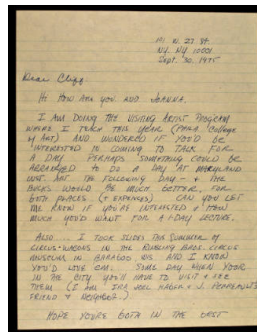 151 W. 27 ST.
NY. NY. 10001
Sept. 30, 1975
Dear Clegg:
HI HOW ARE YOU AND JOANNA.
I AM DOING THE VISITING ARTIST PROGRAM
WHERE I TEACH THIS YEAR (PHILA College
of ART) AND WONDERED IF YOU'D BE
INTERESTED IN COMING TO TALK FOR
A DAY PERHAPS SOMETHING COULD BE
ARRANGED TO DO A DAY AT MARYLAND
INST. ART THE FOLLOWING DAY - + THE
BUCKS WOULD BE MUCH BETTER, FOR
BOTH PLACES (+ EXPENSES) CAN YOU LET
ME KNOW IF YOU'RE INTERESTED + HOW
MUCH YOU'D WANT FOR A 1-DAY LECTURE.
ALSO I TOOK SLIDES THIS SUMMER OF
CIRCUS-WAGONS IN THE RINGLING BROS. CIRCUS
MUSEUM IN BARABOO WIS AND I KNOW
YOU'D LOVE EM. SOME DAY WHEN YOUR
IN THE CITY YOU'LL HAVE TO VISIT + SEE
THEM (I AM IRA JOEL HABER'S + J. PERREAULT'S
FRIEND + NEIGHBOR.)
HOPE YOU'RE BOTH IN THE